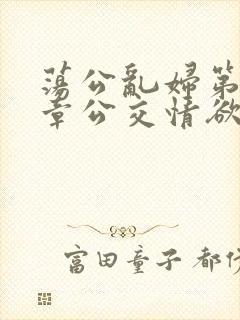 蕩公亂婦第
章公交情欲
富田童子 都